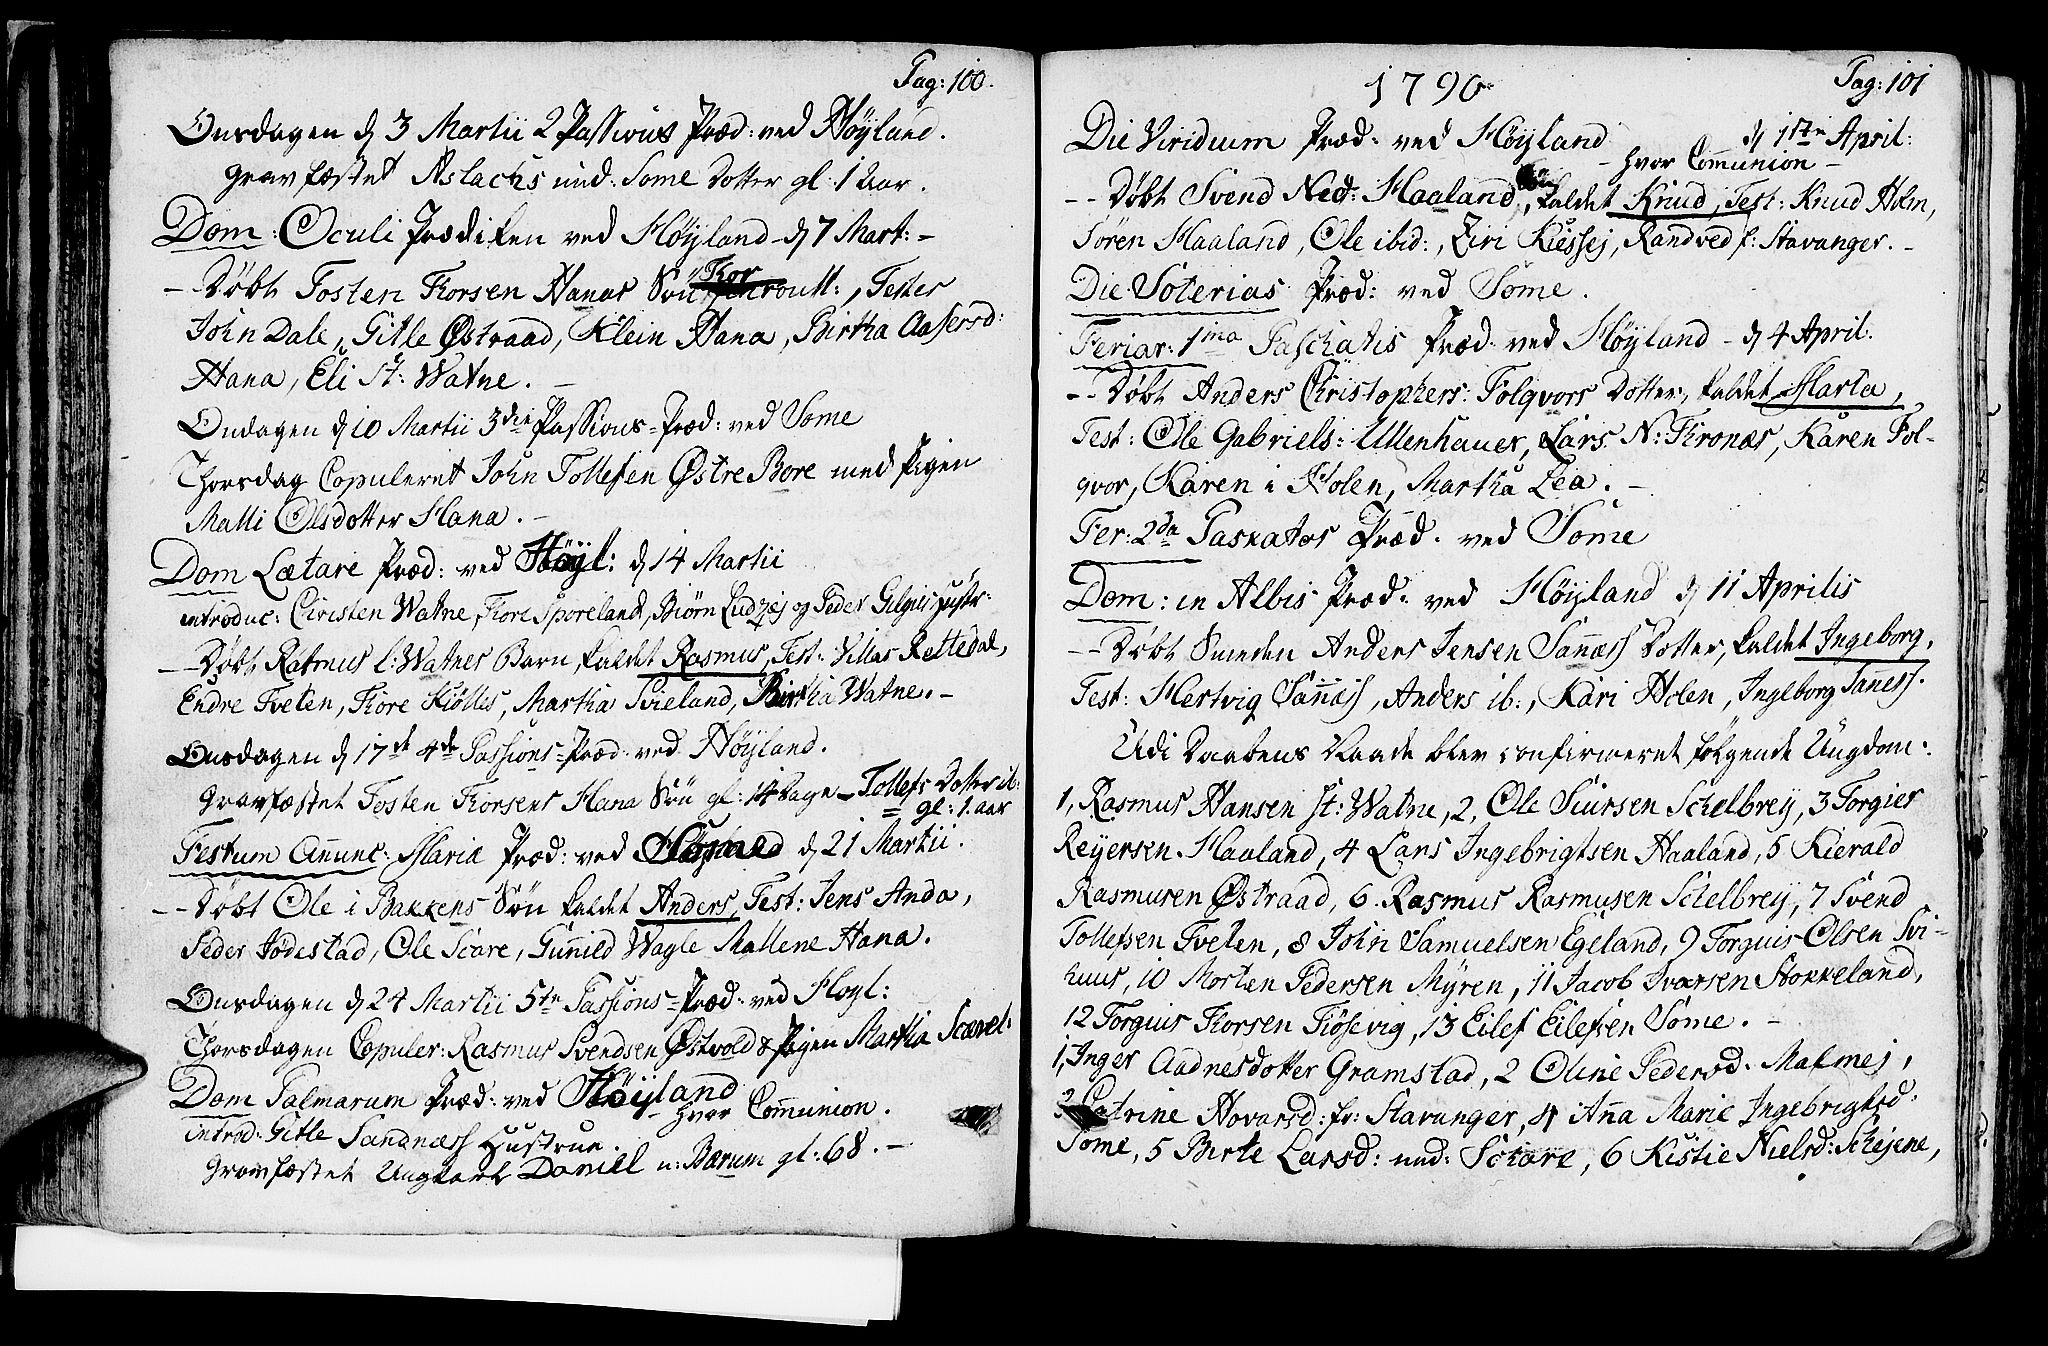 Pag: 100.
Onsdagen d 3 Martii 2 Passions Præd: ved Höyland.
Gravfæstet Aslachs ned: Some Dotter gl: 1 Aar.
Dom: Oculi Prædiken ved Höyland d 7 Mart: -
- Döbt Tosten Torsen Hanas Sön Tor, Testes
John Dale, Gitle Østraad, Klein Hana, Birtha Aasersd:
Hana, Eli St: Watne. -
Ondagen d 10 Martii 3die Passions-Præd: ved Some
Thorsdag Copuleret John Tollefsen Østre Bore med Pigen
Malli Olsdotter Hana. -
Dom Lætare Præd: ved Höyl: d 14 Martii
introduc: Christen Watne, Tore Sporeland, Biörn Ludzej og Peder Gilgies Hustr:
- Döbt Rasmus l: Watnes Barn kaldet Rasmus, Test: Villas Rettedal,
Endre Tveten, Tore Kiölles, Martha Svieland, Birtha Watne. -
Onsdagen d 17de 4de Passions-Præd: ved Höyland.
Gravfæstet Tosten Torsens Hana Sön gl: 14 Dage - Tollefs Dotter ib:
gl: 1. aar
Festum Anunc: Mariæ Præd: ved Höyland d 21 Martii.
- - Döbt Ole i Bakkens Sön kaldet Anders, Test: Jens Anda,
Peder Jödestad, Ole Scare, Gunild Wagle Mallene Hana.
Onsdagen d 24 Martii 5te Passions-Præd: ved Hoyl:
Thorsdagen Copuler: Rasmus Svendsen Østvold & Pigen Martha Scævel:
Dom Palmarum Præd: ved Höyland
- hvor Communion.
introd: Gitle Sandnæss Hustrue.
Gravfæstet Ungkarl Daniel u: Bærum gl: 68. -
1790.
Pag: 101
Die Viridium Præd: ved Höyland d 1ste April:
- hvor Communion -
- - Döbt Svend Ned: Haaland, kaldet Knud, Test: Knud Holm,
Sören Haaland, Ole ibid:, Ziri Kiessej, Randved f: Stavanger. -
Die Soterias Præd: ved Some.
Feriar: 1ma Paschatis Præd: ved Höyland - d 4 April.
- - Döbt Anders Christophers: Folqvors Dotter, kaldet Marta,
Test: Ole Gabriels: Ullenhauer, Lars N: Tronæs, Karen Fol-
qvor, Karen i Holen, Martha Lea. -
Fer: 2da Paskatos Præd. ved Some
Dom: in Albis Præd: ved Höyland d 11 Aprilis
- - Döbt Anders Jensen Sannæss Dotter, kaldet Ingeborg,
Test: Hertvig Sannæss, Anders ib:, Kari Holen, Ingeborg Saness.
Udi Daabens Naade blev confirmeret fölgende Ungdom:
1, Rasmus Hansen St: Watne, 2, Ole Siursen Schelbrey, 3 Torgier
Reyersen Haaland, 4 Lars Ingebrigtsen Haaland, 5 Kierald
Rasmusen Østraad, 6. Rasmus Rasmusen Schelbrey, 7 Svend
Tollefsen Tveten, 8 John Samuelsen Egeland, 9 Torguis Olsen Svi-
huus, 10 Morten Pedersen Myren, 11 Jacob Ivarsen Stokkeland,
12 Torguis Torsen Tiösevig, 13 Eilef Eilefsen Some. -
1, Inger Aadnesdotter Gramstad, 2 Oline Pedersd. Malmej,
3 Catrine Hovarsd: fr: Stavanger, 4 Anna Marie Ingebrigtsd:
Some, 5 Birte Larsd: ned: Schare, 6 Kistie Nielsd: Schejene,